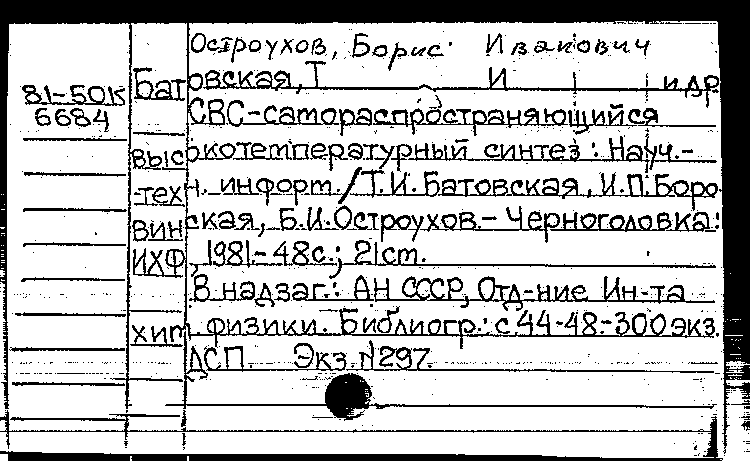 Остроухов, Борис Иванович
Батовская, Т И и др
81-50К
6684
СВС-самораспространяющийся
высокотемпературный синтез: Науч.-
техн. информ. / Т.И. Батовская, И.П. Боро
винская, Б.И. Остроухов. - Черноголовка:
ИХФ, 1981. - 48 с.; 21 ст.
В надзаг.: АН СССР, Отд-ние Ин-та
хим. физики. Библиогр.: с. 44-48. - 300 экз.
ДСП. Экз. N 297.